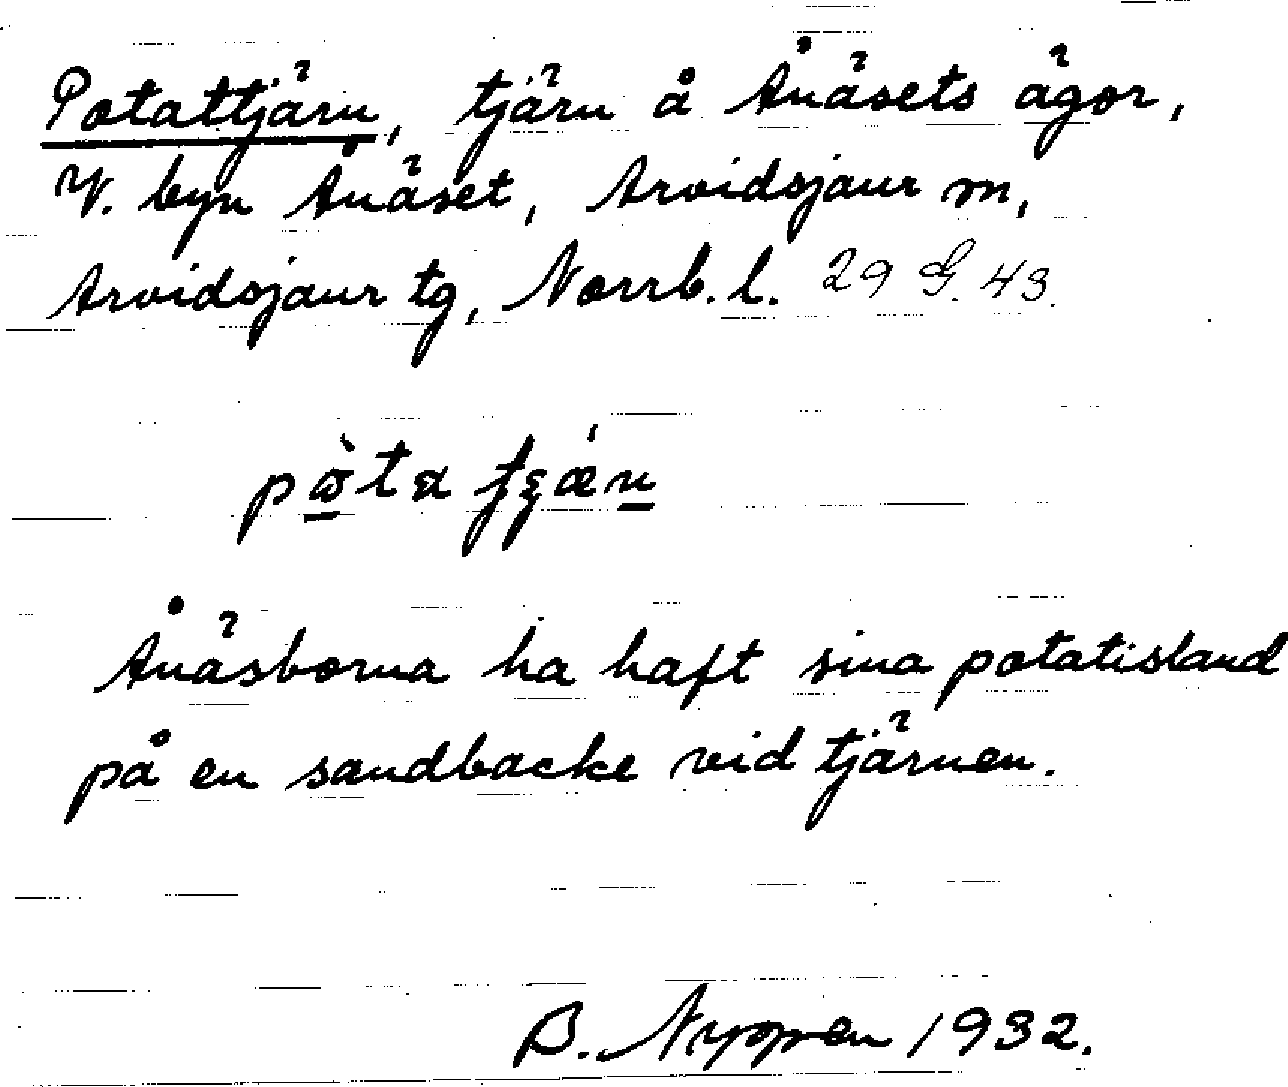 Potattjärn, tjärn å Ånäsets ägor,
V. byn Ånäset, Arvidsjaur sn,
Arvidsjaur tg, Norrb. l. 29 G. 43.
Ånäsborna ha haft sina potatisland
på en sandbacke vid tjärnen.
B. Nyppen 1932.